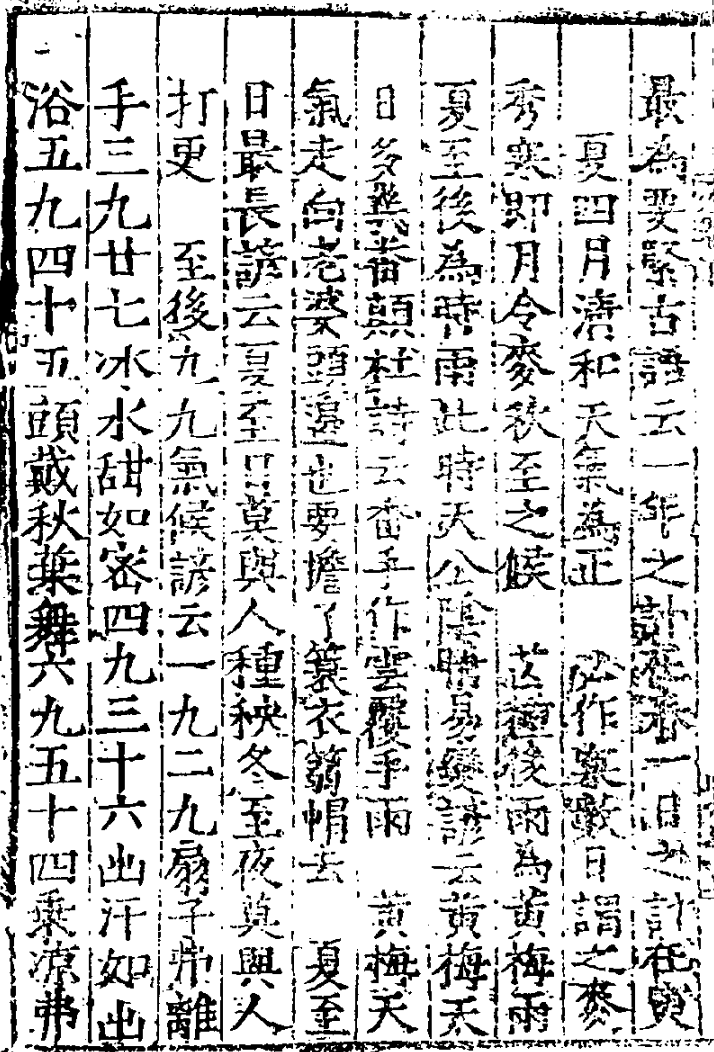 最為要緊古語云一年之計在春一日之計在寅
夏四月清和天氣為正　必作寒數日謂之麥
秀寒即月令麥秋至之候　芒種後雨為黃梅雨
夏至後為時雨此時天公陰晴易變諺云黃梅天
日多幾番顛杜詩云番手作雲覆手雨　黃梅天
氣走向老婆頭邉也要擔了簑衣蒻帽去　夏至
日最長諺云夏至日莫與人種秧冬至夜莫與人
打更　至後九九氣候諺云一九二九扇子弗離
手三九廿七冰水甜如宻四九三十六出汗如出
浴五九四十五頭戴秋葉舞六九五十四乘凉弗